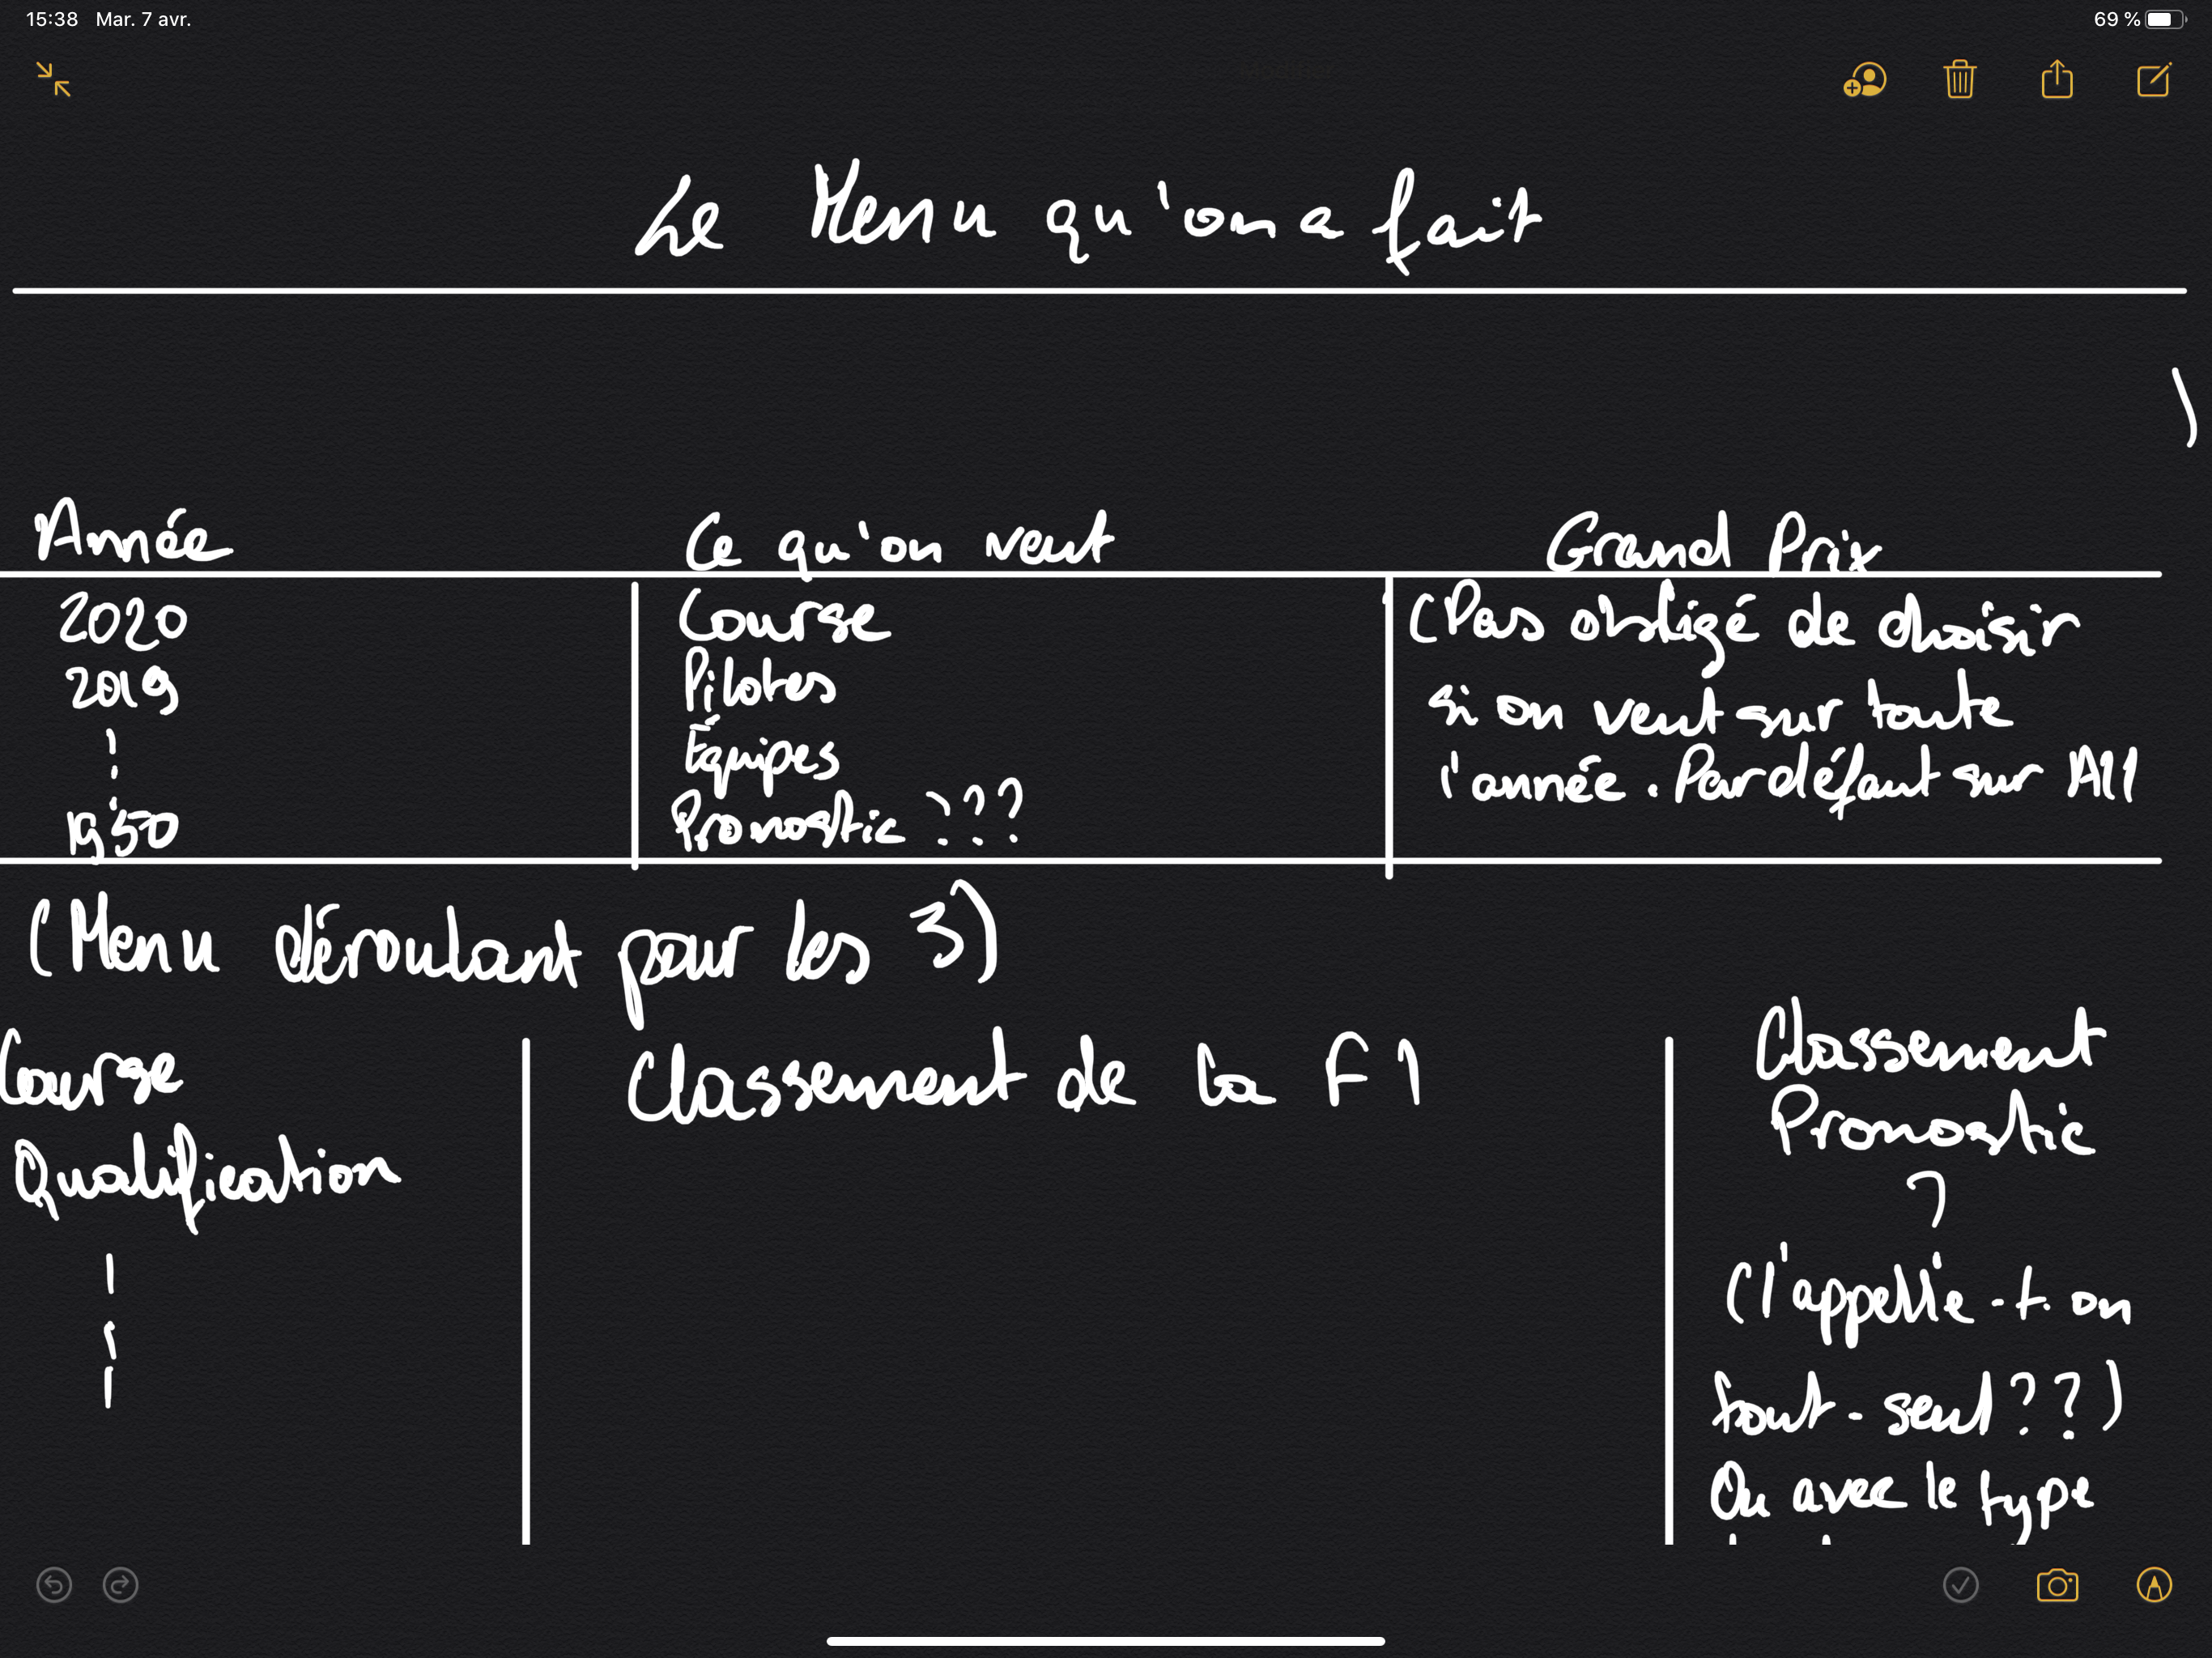 15:38 Mar. 7 avr.
69 %
Le Menu qu'on a fait
Année
Ce qu'on veut
Grand Prix
2020
2019
1950
Course
Pilotes
Équipes
Pronostic ???
(Pas obligé de choisir
si on veut sur toute
l'année. Par défaut sur All
(Menu déroulant pour les 3)
Course
Qualification
Classement de la F1
Classement
Pronostic
?
(l'appelle-t-on
tout-seul??)
Ou avec le type